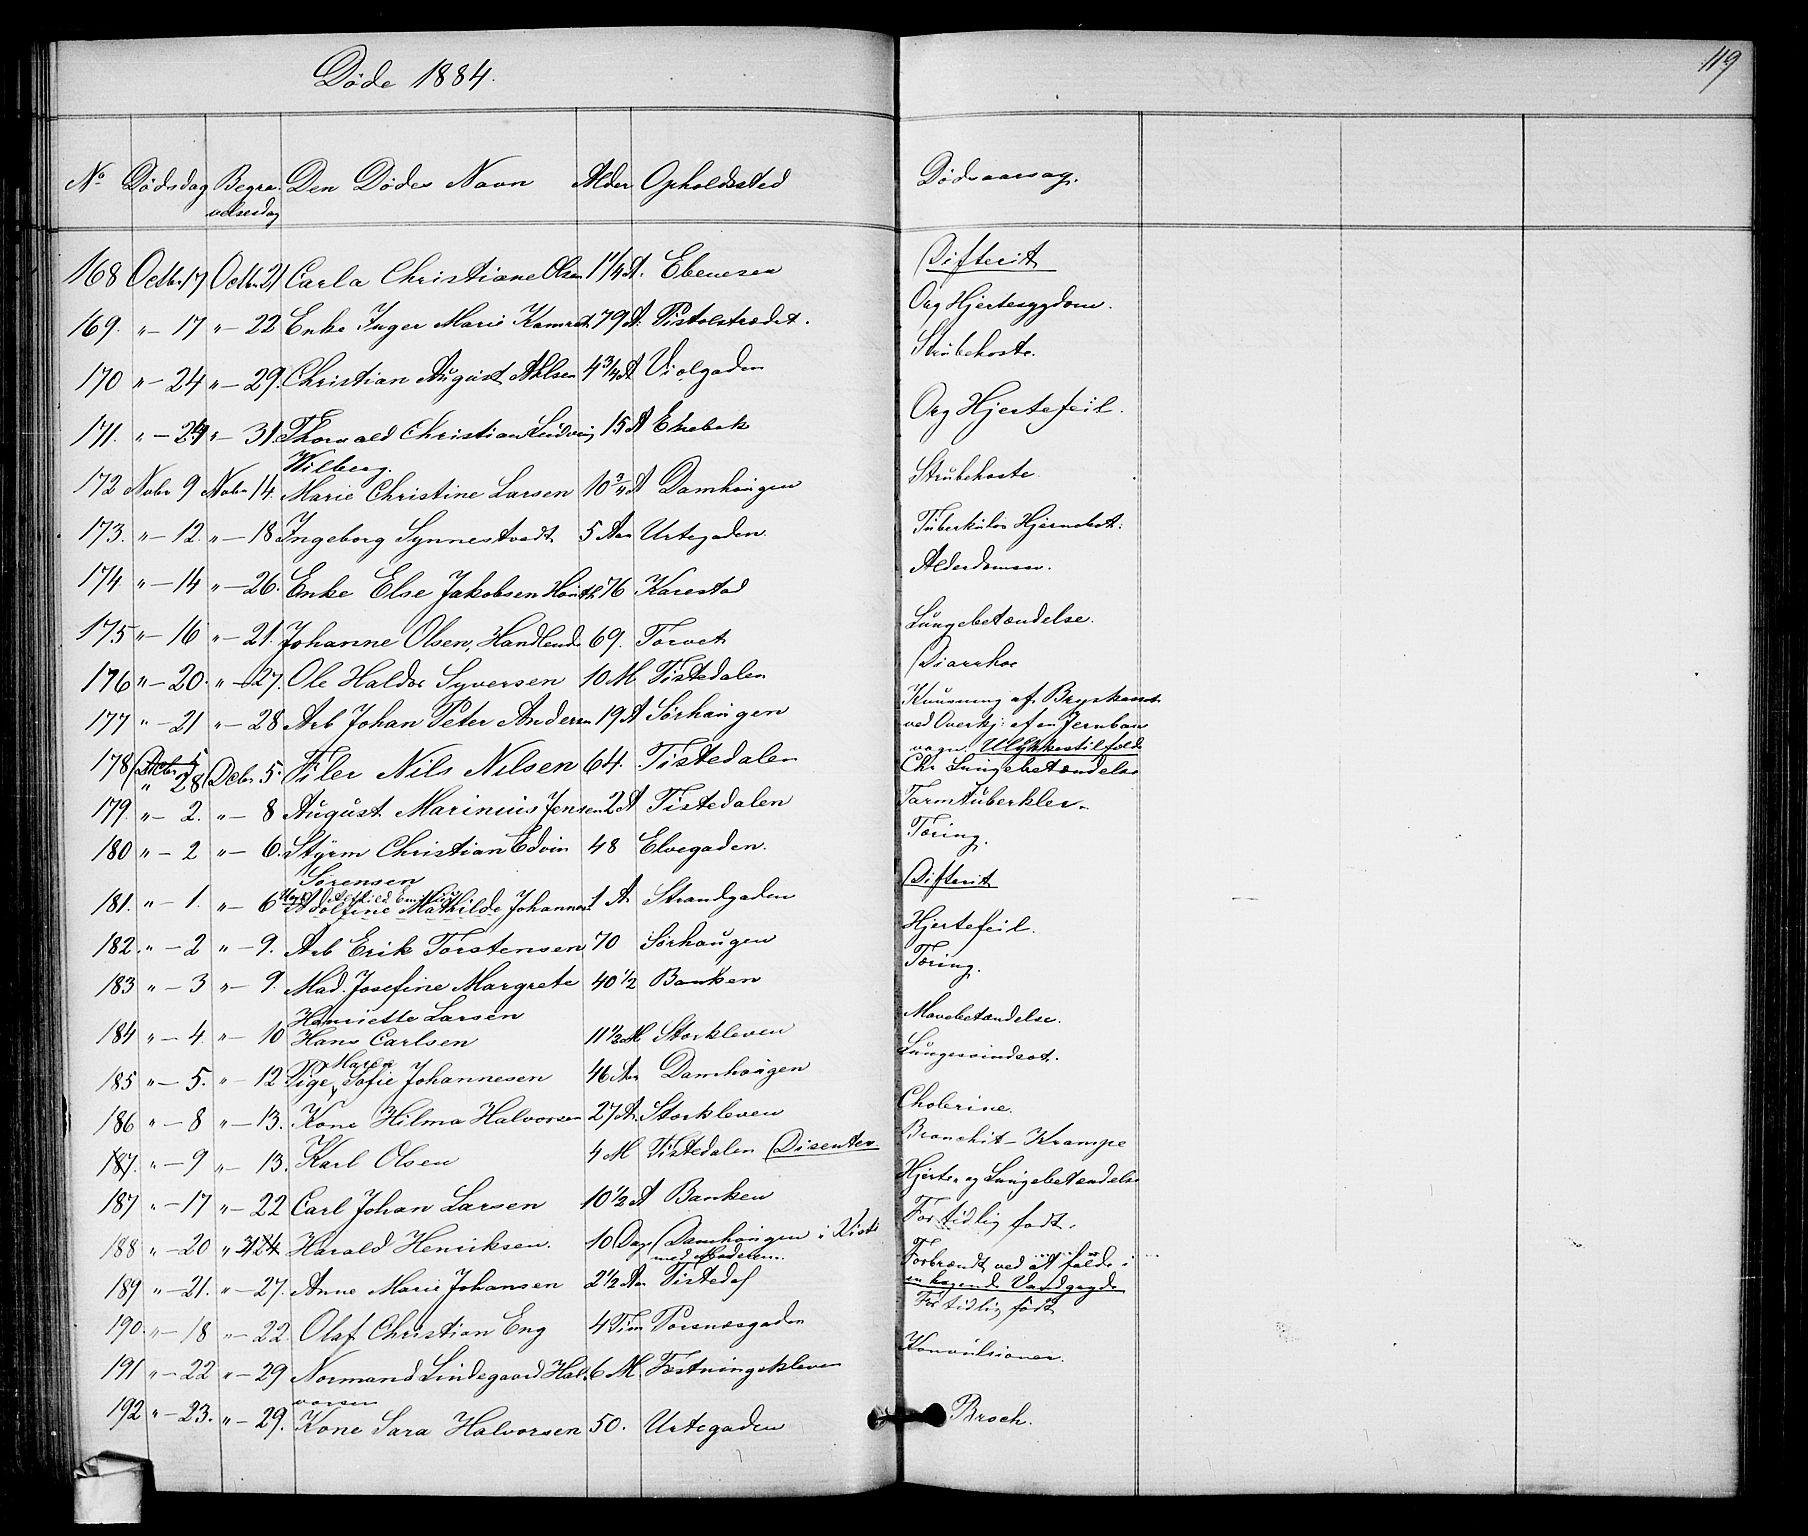 Døde 1884.
119
No Dødsdag Begra- Den Dødes Navn Alder Opholdssted Dødsaarsag.
velsesdag
168 Octbr. 17 Octbr. 21 Carla Christiane Olsen 1 1/4 A. Ebeneser Difterit
169. " - 17 " - 22 Enke Inger Marie 79 A. Pistolstrædet. Org Hjertesygdom.
170 " - 24 " - 29. Christian August Ahlsen 4 3/4 A Violgaden Strübehoste.
171. " - 24 " - 31. Thorvald Christian Ludvig 15 A Enebak Org Hjertefeil.
Wilberg.
172 Novbr 9 Novbr 14. Marie Christine Larsen 10 A Damhaügen Strübehoste
173. " - 12. " - 18 Ingeborg Synnestvedt 5 Aar Urtegaden. Tüberküløs Hjernebet:
174 " - 14 " - 26. Enke Else Jakobsen 76 Karestad Alderdommen.
175 " - 16 " - 21. Johanne Olsen, Handlende 69. Torvet Lüngebetændelse.
176 " - 20. " - 27. Ole Haldor Syversen 10 M. Tistedalen Diarrhoe
177 " - 21 " - 28 Arb Johan Peter Andersen 19 A Sørhaügen Knüsning af Brystkassen
ved Overkj: af en Jernban
vogn. Ulykkestilfælde
178 Decbr 5 Decbr 5. Filer Nils Nilsen 64. Tistedalen Chr Lüngebetændelse
" 28
179. " - 2. " - 8 Aügüst Marinius Jensen 2 A Tistedalen Tarmtüberkler.
180 " - 2 " - 6. Styrm Christian Edvin 48 Elvegaden. Tæring.
Sørensen
181. " - 1. " - 6 Adolfine Mathilde Johannes 1 A Strandgaden Difterit
182. " - 2 " - 9. Arb Erik Torstensen 70 Sørhaügen Hjertefeil.
183 " - 3 " - 9. Mad. Josefine Margrete 40 1/2 Banken Tæring.
Henriette Larsen
184 " - 4. " - 10 Hans Carlsen 11 1/2 M. Storkleven Mavebetændelse.
Maren
185 " - 5. " - 12 Pige, Sofie Johannesen 46 Aar Damhaügen Lüngesvindsot.
186 " - 8 " - 13. Kone Hilma Halvorsen 27 A. Storkleven Cholerine.
187. " - 9 " - 13. Karl Olsen 4 M Tistedalen (Disenter. Bronchit - Krampe
187 " - 17 " - 22 Carl Johan Larsen 10 1/2 A Banken Hjerte- og Lüngebetændelse
188 " - 20 " 31 24 Harald Henriksen. 10 Dage (Damhaügen i Kiste For tidlig født.
med Moderen.
189 " - 21. " - 27. Anne Marie Johansen 2 1/2 Aar Tistedal Forbrændt ved at falde i
en kogende Vandgryde
190. " - 18 " - 22. Olaf Christian Eng 4 Tim Torsnæsgaden For tidlig født
191 " - 22 " - 29 Normand Lindegaard Hal- 6 M. Fæstningskleven Konvülsioner.
vorsen
192 " - 23. " - 29. Kone Sara Halvorsen 50. Urtegaden Broch.